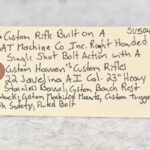 SU504
• Custom Rifle Built on A
BAT Machine Co Inc. Right Handed
Single Shot Bolt Action with A
Custom Rifles
22 Javelina AI Cal. 23" Heavy
Stainless Barrel, Custom Bench Rest
Stock, Custom Machined Mounds, Custom Trigger
Safety, Fluted Bolt